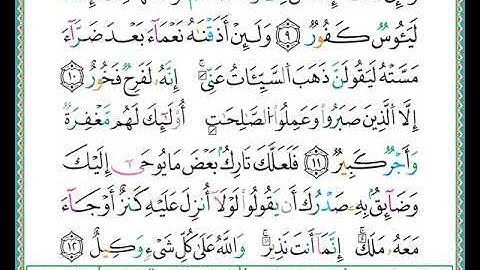 لَيَـُٔوسٌ كَفُورٌ ٩ وَلَئِنْ أَذَقْنَٰهُ نَعْمَآءَ بَعْدَ ضَرَّآءَ
مَسَّتْهُ لَيَقُولَنَّ ذَهَبَ ٱلسَّيِّـَٔاتُ عَنِّىٓ ۚ إِنَّهُۥ لَفَرِحٌ فَخُورٌ ١٠
إِلَّا ٱلَّذِينَ صَبَرُوا۟ وَعَمِلُوا۟ ٱلصَّٰلِحَٰتِ أُو۟لَٰٓئِكَ لَهُم مَّغْفِرَةٌ
وَأَجْرٌ كَبِيرٌ ١١ فَلَعَلَّكَ تَارِكٌۢ بَعْضَ مَا يُوحَىٰٓ إِلَيْكَ
وَضَآئِقٌۢ بِهِۦ صَدْرُكَ أَن يَقُولُوا۟ لَوْلَآ أُنزِلَ عَلَيْهِ كَنزٌ أَوْ جَآءَ
مَعَهُۥ مَلَكٌ ۚ إِنَّمَآ أَنتَ نَذِيرٌ ۚ وَٱللَّهُ عَلَىٰ كُلِّ شَىْءٍ وَكِيلٌ ١٢